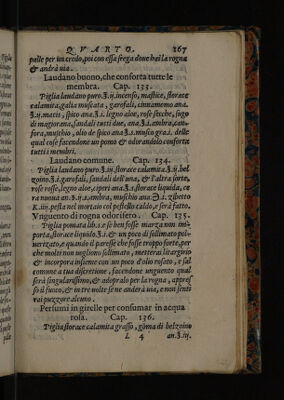 QVARTO. 267
palle per un credo, poi con essa frega doue hai la rogna
& andrà uia.
Laudano buono, che conforta tutte le
membra. Cap. 133.
Piglia laudano puro. ℥.ij. incenso, mastice, storace
calamita, galia muscata, garofali, cinnamomo ana.
℥.ij. macis, spico ana. ℥.i. legno aloe, rose secche, sugo
di magiorana, sandali tutti due, ana. ℥.i. ambra, canfora,
muschio, olio de spico ana. ℥.i. musco gra.i. delle
qual cose facendone un pomo & odorandolo conforta
tutti i membri.
Laudano comune. Cap. 134.
Piglia laudano puro. ℥.iij. storace calamita. ℥.ij. belzoino.
℥.i. garofali, sandali dell'una, & l'altra sorte,
rose rosse, legno aloe, ciperi ana. ℥.i. storace liquida, cera
nuoua an. ℥.ij. ambra, muschio ana. ℥.i. zibetto
K.iiij. pesta nel mortaio col pestello caldo, e sarà fatto.
Vnguento di rogna odorifero. Cap. 135.
Piglia pomata lib.i. e se ben fosse marza non importa,
storace liquido. ℥.i. & un poco di sollimato poluerizato,
e quando il paresse che fosse troppo forte, per
che molti non uogliono sollimato, metteraui largirio
& incorpora insieme con un poco d'olio rosato, e sal
comune a tua discretione, facendone unguento qual
serà singularissimo, & adopralo per la rogna, appresso
il fuoco, & in tre uolte se ne anderà uia, e non senti
rai puzzore alcuno.
Perfumi in girelle per consumar in acqua
rosa. Cap. 136.
Piglia storace calamita grasso, goma di belzoino
L 4 an. ℥.iij.